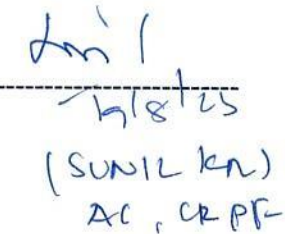 19/8/25
(SUNIL KR)
AC, CRPF